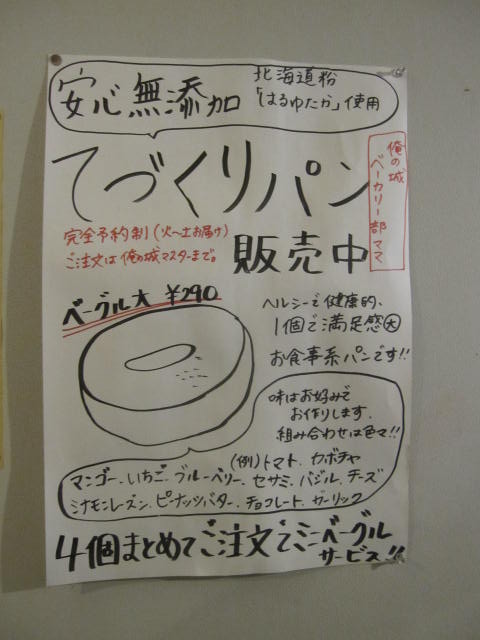 安心無添加
北海道粉
「はるゆたか」使用
てづくりパン
販売中
俺の城
ベーカリー部ママ
完全予約制(火〜土お届け)
ご注文は俺の城マスターまで。
ベーグル大 ¥290
ヘルシーで健康的、
1個で満足感大
お食事系パンです!!
味はお好みで
お作りします。
組み合わせは色々!!
(例)トマト、カボチャ
マンゴー、いちご、ブルーベリー、セサミ、バジル、チーズ
シナモンレーズン、ピーナッツバター、チョコレート、ガーリック
4個まとめてご注文でミニベーグル
サービス!!